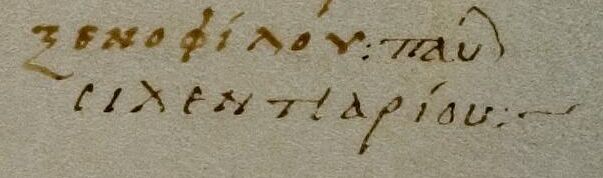 ξενοφίλου: παύλ
σιλεντιαρίου:~